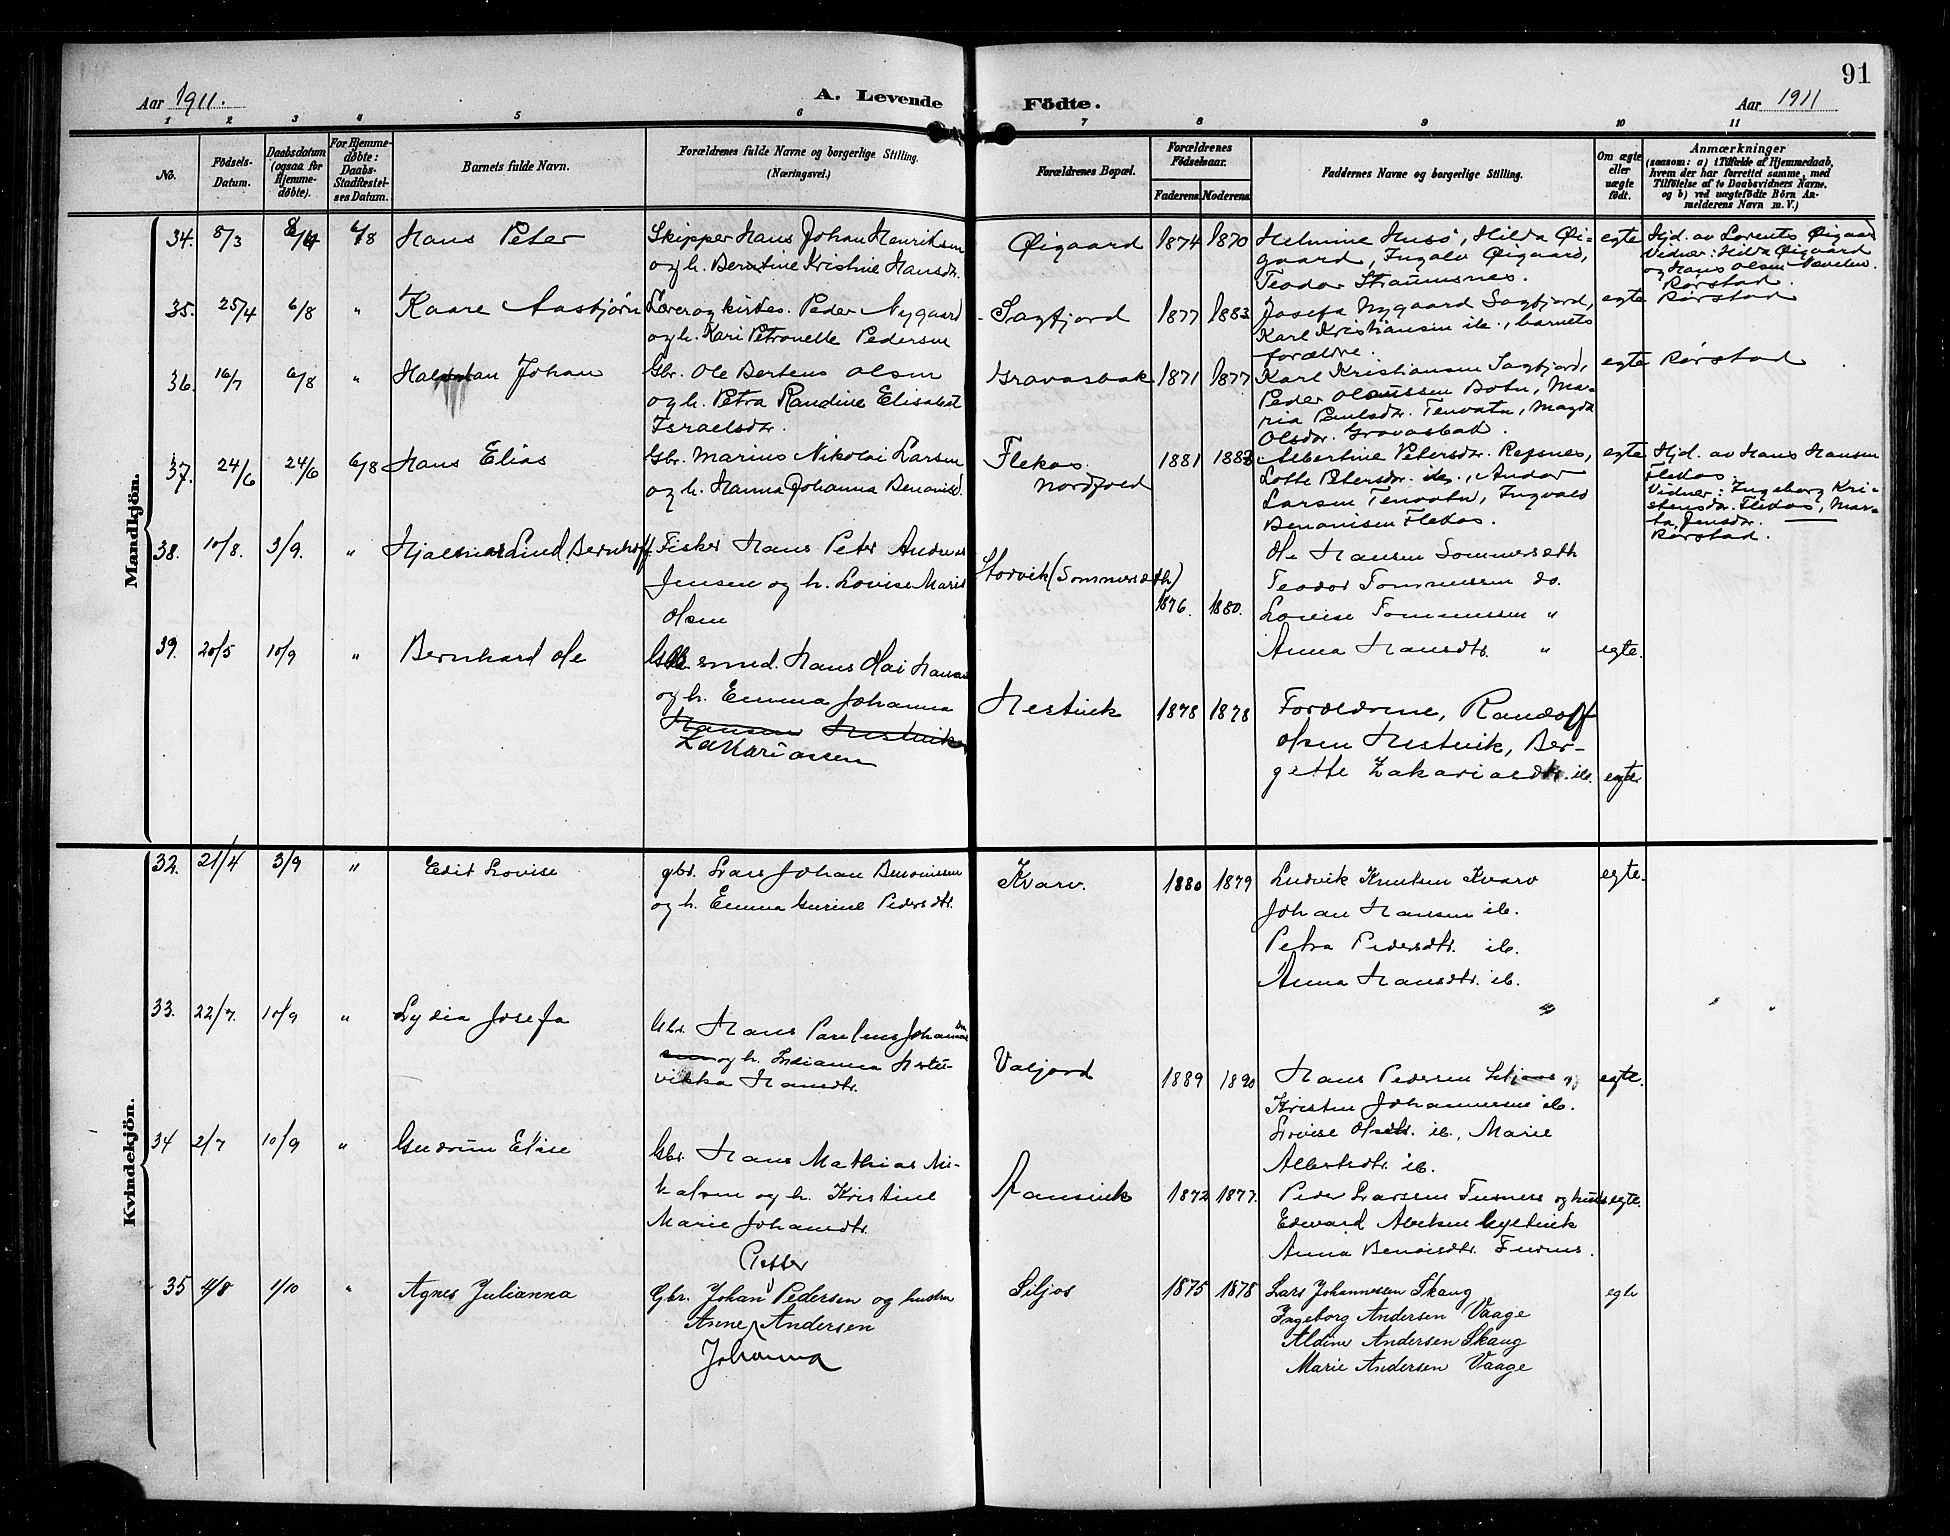 91
Aar 1911. A. Levende Födte. Aar 1911
1 2 3 4 5 6 7 8 9 10 11
No.
Födsels-
Datum.
Daabsdatum
(ogsaa for
Hjemme-
döbte).
For Hjemme-
döbte:
Daabs-
Stadfæstel-
ses Datum.
Barnets fulde Navn.
Forældrenes fulde Navne og borgerlige Stilling.
(Næringsvei.)
Forældrenes Bopæl.
Forældrenes
Födselsaar.
Faderens Moderens
Faddernes Navne og borgerlige Stilling.
Om ægte
eller
uægte
födt.
Anmærkninger
(saasom: a) i Tilfælde af Hjemmedaab,
hvem der har forrettet samme, med
Tilföielse af to Daabsvidners Navne,
og b) ved uægtefödte Börn An-
melderens Navn m. V.)
Mandkjön.
34. 8/3 6/8 Hans Peter
Skipper Hans Johan Henriksen
og h. Berntine Kristine Hansdr.
Øigaard 1874 1870
Helmine Husö, Hilda Øi-
gaard, Ingolv Øigaard,
Teodor Straumsnes.
egte
Hjd. av Lorents Øigaard
Vidner: Hilda Øigaard
og Hans Olsen
Rørstad.
35. 25/4 6/8 " Kaare Aasbjørn
Lærer og kirkes. Peder Nygaard
og h. Kari Petronelle Pedersen
Sagfjord 1877 1883
Josefa Nygaard Sagfjord,
Karl Kristiansen ib., barnets
forældre.
egte Rørstad
36. 16/7 6/8 " Johan
Gbr. Ole Bertens Olsen
og h. Petra Randine Elisabet
Israelsdr.
Gravasbak 1871 1877
Karl Kristiansen Sagfjord,
Peder Olaussen Botn, Ma-
ria Paulsdr. Tenvatn, Magda
Olsdr. Gravasbak.
egte Rørstad
37. 24/6 24/6 6/8 Hans Elias
Gbr. Marius Nikolai Larsen
og h. Hanna Johanna Benonisd.
Flekas
Nordfold
1881
Albertine Petersdr. Refsnes,
Lotte Petersdr. , Andor
Larsen Tenvatn, Ingvald
Benonisen Flekas.
egte
Hjd. av Hans Hansen
Flekas.
Vidner: Ingeborg Kri-
stensdr. Flekas, Mar-
ta Jensdr.
Rørstad.
38. 10/8. 3/9. " Hjalmar Lind Bernhoff
Fisker Hans Peter Andreas
Jensen og h. Lovise Marie
Olsen
Storvik (Sommerseth)
1876. 1880.
Ole Hansen Sommerseth
Teodor Tommessen do.
Lovise Tommessen "
Anna Hansdtr. " egte.
39. 20/5 10/9 " Bernhard Ole
smed. Hans Hansen
og h. Emma Johanna
Zakariassen
Hestvik 1878 1878
Forældrene, Randolf
Olsen Hestvik, Ber-
gette Zakariasdtr. ib. egte
Kvindekjön.
32. 21/4 3/9 " Edit Lovise
gbr. Lars Johan Benonissen
og h. Emma Gurine Pedersdtr.
Kvarv. 1880 1879
Ludvik Knutsen Kvarv
Johan Hansen ib.
Petra Pedersdtr. ib.
Anna Hansdtr. ib.
egte.
33. 22/7. 10/9 " Lydia Josefa
Gbr. Hans Parelius
og h. Indianna
vikka Hansdtr.
Valjord 1889 1890
Hans Pedersen
Kristen Johannessen ib.
Lovise Olsdtr. ib., Marie
Albertsdtr. ib.
egte.
34 2/7 10/9 " Gudrun Elise
Gbr. Hans Mathias Mi-
kalsen og h. Kristine
Marie Johansdtr.
1872 1877.
Peder Larssen Furnes og hustru
Edvard
Anna Furnes.
egte.
35 4/8 1/10 " Agnes Julianna
Petter
Gbr. Johan Pedersen og hustru
Anne Andersen
Johanna
Siljos 1875 1878
Lars Johannesen Skaug
Ingeborg Andersen Vaage
Aldine Andersen Skaug
Marie Andersen Vaage
egte